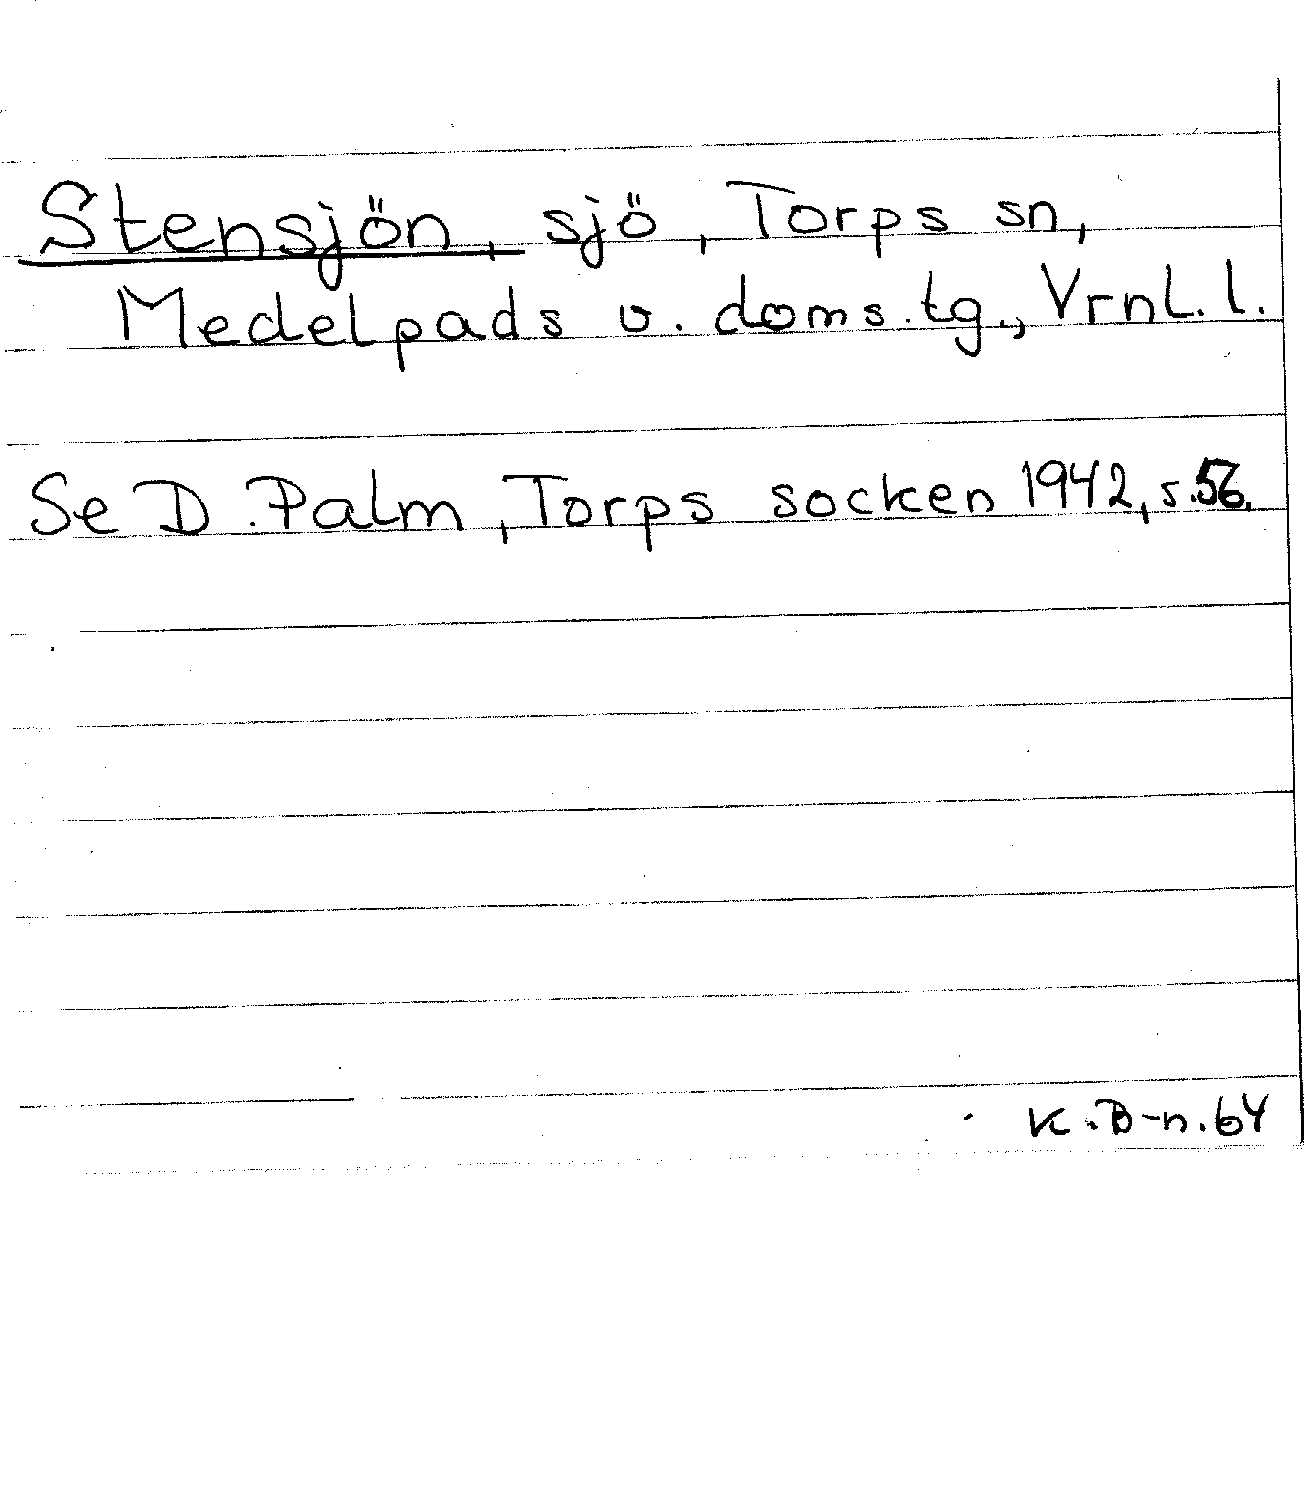 Stensjön, sjö, Torps sn,
Medelpads v. doms.tg., Vrnl. l.
Se D. Palm, Torps socken 1942, s. 56.
K.B-n. 64